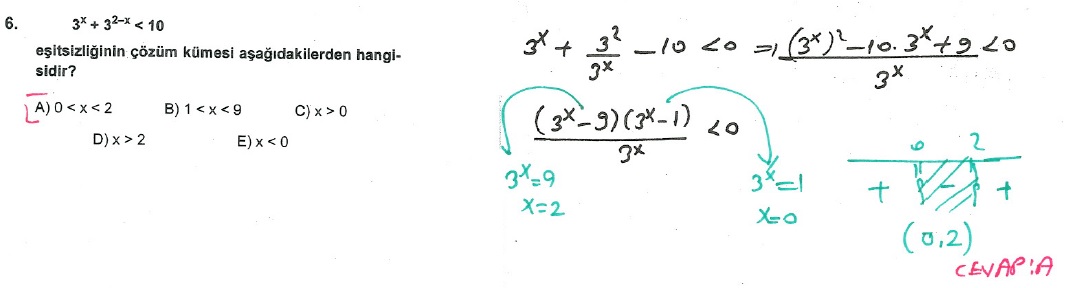 6. 3^x + 3^(2–x) < 10
eşitsizliğinin çözüm kümesi aşağıdakilerden hangi-
sidir?
A) 0 < x < 2 B) 1 < x < 9 C) x > 0
D) x > 2 E) x < 0
3^x + 3^2/3^x – 10 < 0 ⇒ ((3^x)^2 – 10. 3^x + 9)/3^x < 0
(3^x – 9)(3^x – 1)/3^x < 0
3^x = 9 3^x = 1
x = 2 x = 0
0 2
+ – +
(0,2)
CEVAP:A